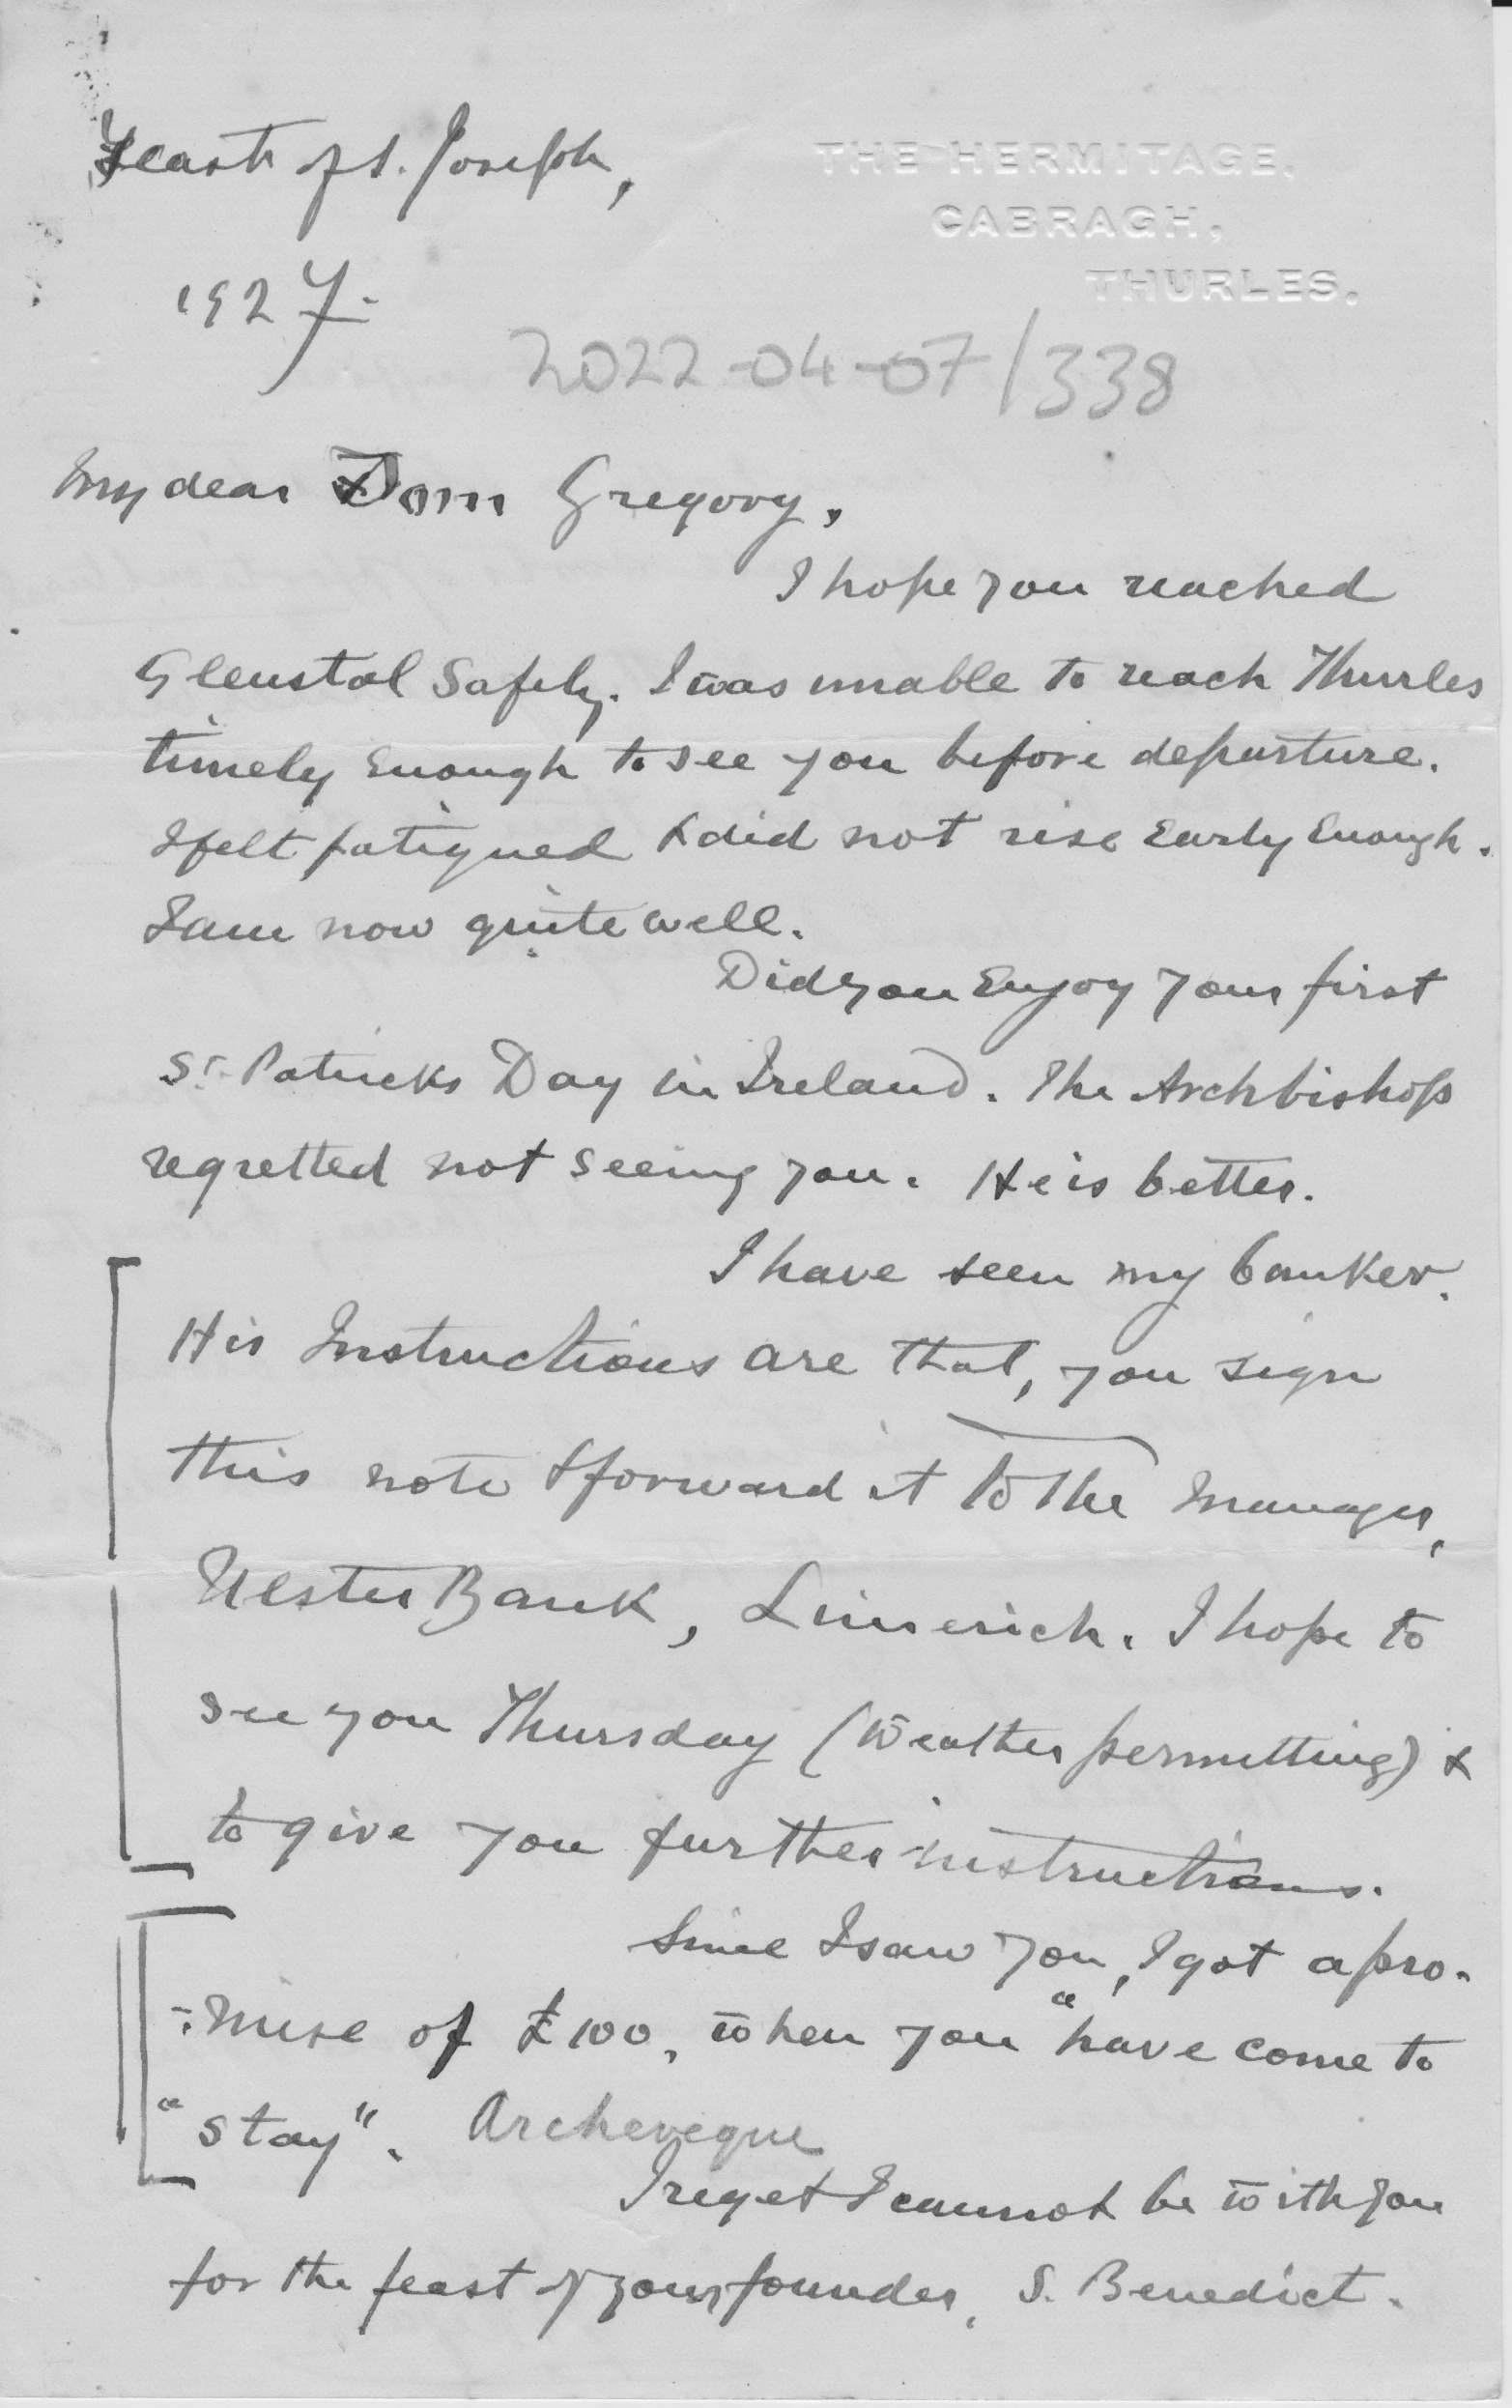 Feast of S. Joseph,
THE HERMITAGE,
CABRAGH,
THURLES.
1927.
2022-04-07/338
My dear Dom Gregory,
I hope you reached
Glenstal Safely. I was unable to reach Thurles
timely enough to see you before departure.
I felt fatigued & did not rise early enough.
I am now quite well.
Did you Enjoy your first
St. Patricks Day in Ireland. The Archbishop
regretted not seeing you. He is better.
I have seen my banker.
His Instructions are that, you sign
this note & forward it to the Manager,
Ulster Bank, Limerick. I hope to
see you Thursday (Weather permitting) &
to give you further instructions.
Since I saw you, I got a pro-
-mise of £100, when you "have come to
"stay". Archeveque
I reget I cannot be with you
for the feast of your founder, S. Benedict.